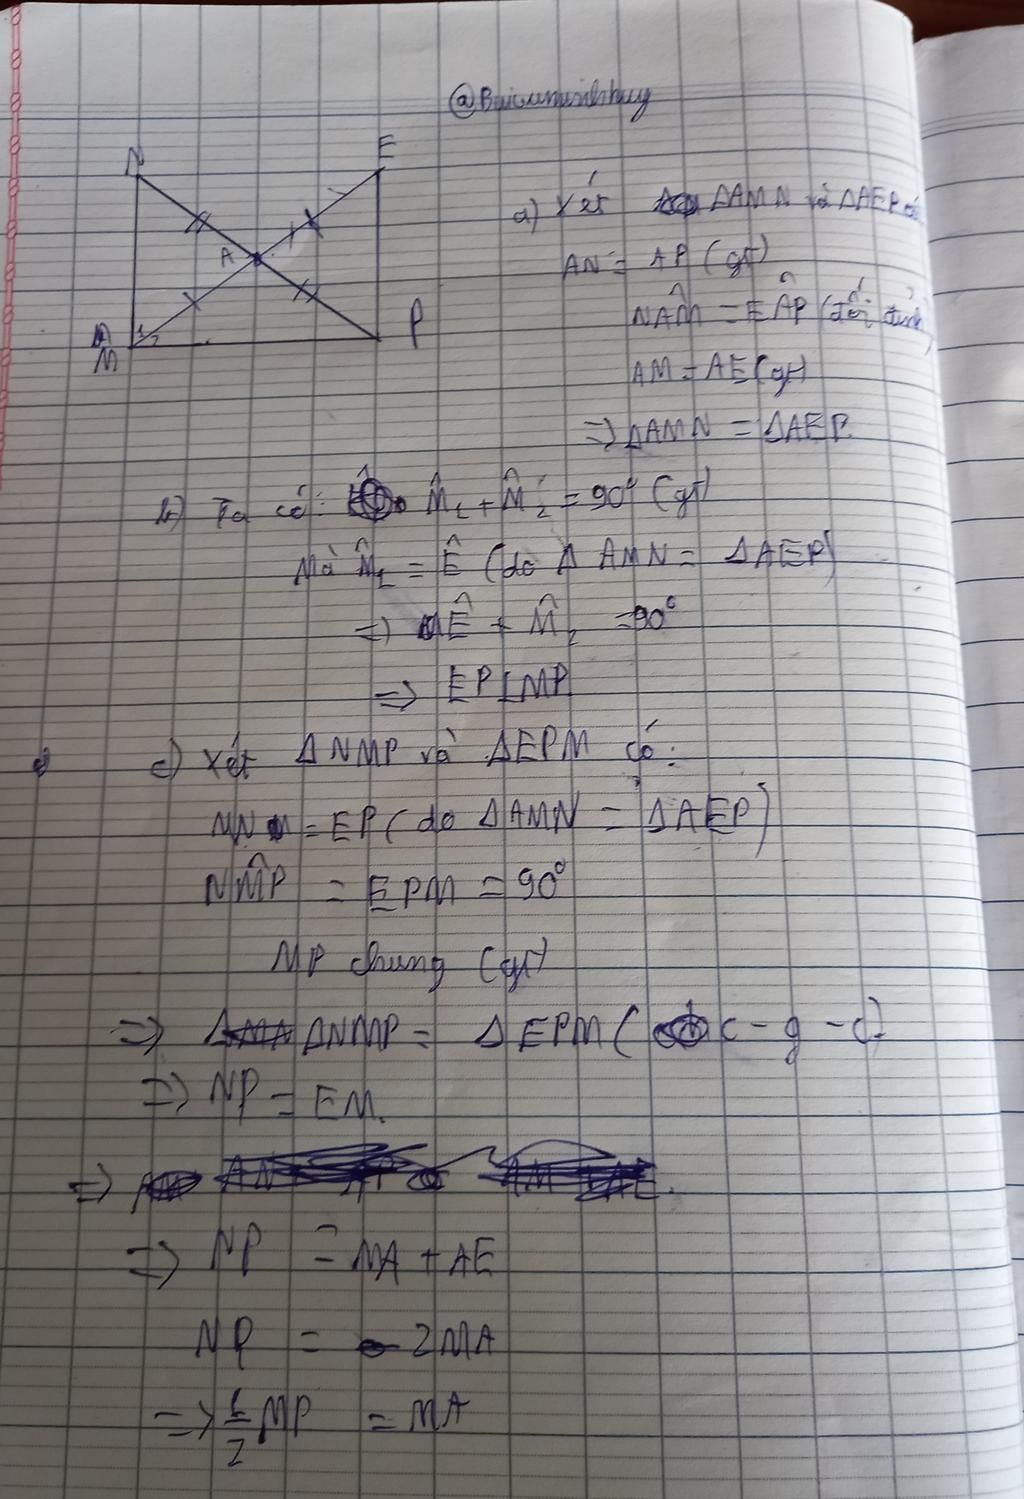 N
E
A
M
1
2
P
a) Xét ΔAMN và ΔAEP có
AN = AP (gt)
NÂM = EÂP (đối đỉnh)
AM = AE (gt)
=> ΔAMN = ΔAEP.
b) Ta có: M̂₁ + M̂₂ = 90° (gt)
Mà M̂₁ = Ê (do ΔAMN = ΔAEP)
=> Ê + M̂₂ = 90°
=> EP⊥MP
c) Xét ΔNMP và ΔEPM có:
MN = EP (do ΔAMN = ΔAEP)
NM̂P = EPM = 90°
MP chung (gt)
=> ΔNMP = ΔEPM (c-g-c)
=> NP = EM.
=>
=> NP = MA + AE
NP = 2MA
=> 1/2 MP = MA